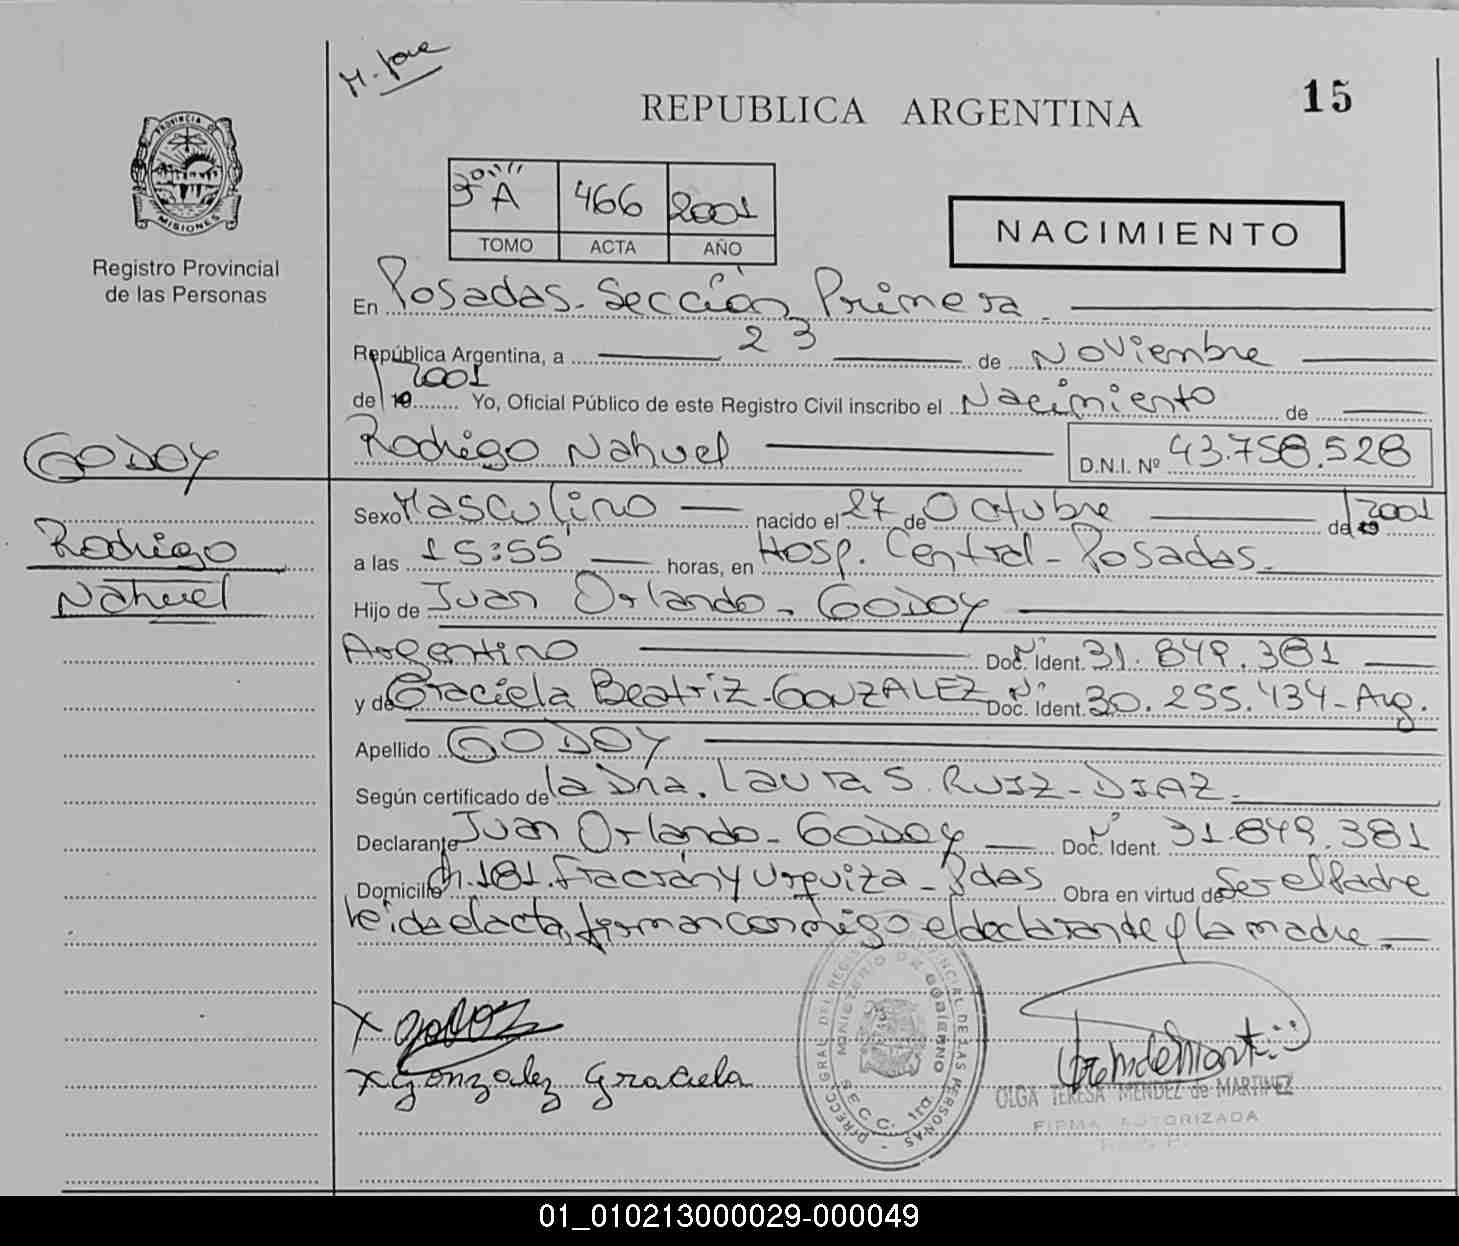 M. José
15
REPUBLICA ARGENTINA
PROVINCIA DE
MISIONES
Registro Provincial
de las Personas
3º "A" 466 2001
TOMO ACTA AÑO
NACIMIENTO
En Posadas - Sección Primera
República Argentina, a 23 de Noviembre
de 19 2001 Yo, Oficial Público de este Registro Civil inscribo el Nacimiento de
GODOY Rodrigo Nahuel D.N.I. Nº 43.758.528
Sexo Masculino nacido el 27 de Octubre de 19 2001
Rodrigo a las 15:55' horas, en Hosp. Central - Posadas.
Nahuel Hijo de Juan Orlando - GODOY
Argentino Doc. Ident. Nº 31.849.381
y de Graciela Beatriz - GONZALEZ Doc. Ident. Nº 30.255.434 - Arg.
Apellido GODOY
Según certificado de la Dra. Laura S. RUIZ - DIAZ.
Declarante Juan Orlando - GODOY Doc. Ident. Nº 31.849.381
Domicilio Ch. 181. Fracrán y Urquiza - Pdas Obra en virtud de Ser el Padre
leída el acta, firman conmigo el declarante y la madre. -
x Godoy
x Gonzalez Graciela
DIRECC. GRAL DEL REGISTRO PROVINCIAL DE LAS PERSONAS
MINISTERIO DE GOBIERNO
SECC. 1ra
OLGA TERESA MENDEZ de MARTINEZ
FIRMA AUTORIZADA
01_010213000029-000049